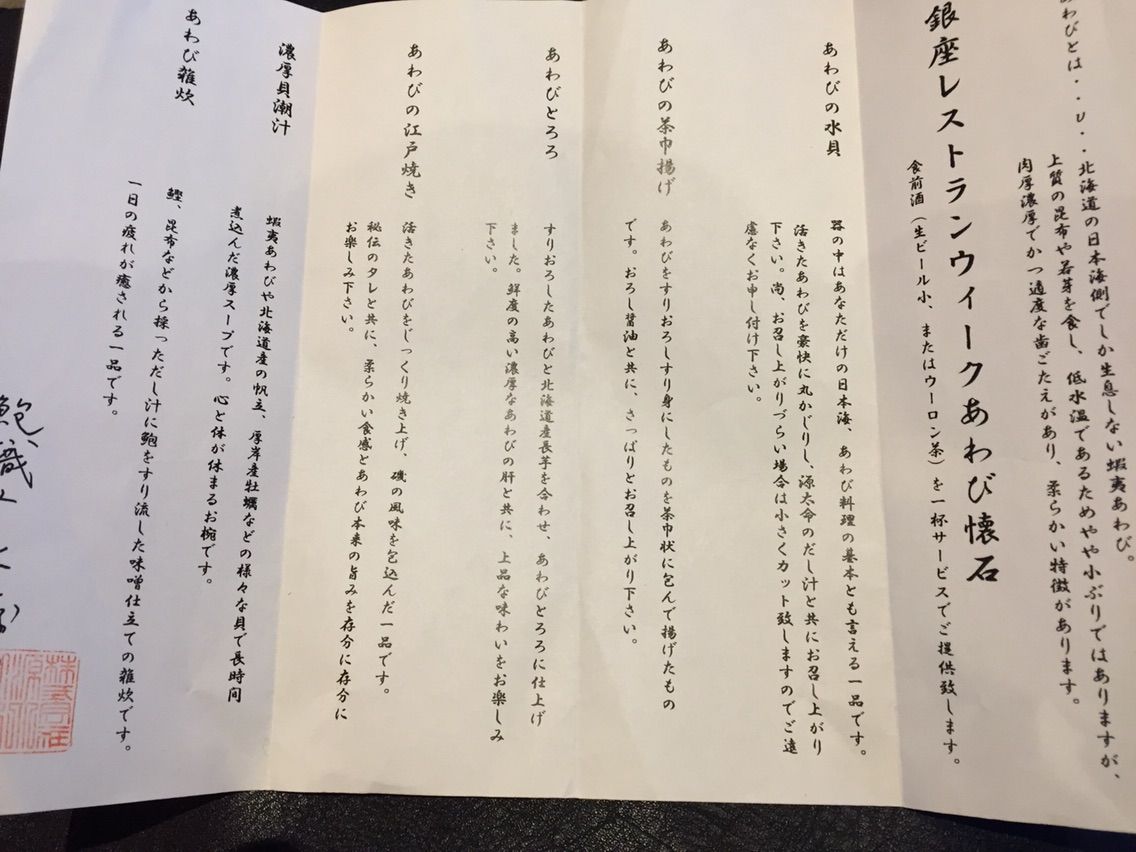 あわびとは・・
北海道の日本海側でしか生息しない蝦夷あわび。
上質の昆布や若芽を食し、低水温であるためやや小ぶりではありますが、
肉厚濃厚でかつ適度な歯ごたえがあり、柔らかい特徴があります。
銀座レストランウィークあわび懐石
食前酒（生ビール小、またはウーロン茶）を一杯サービスでご提供致します。
あわびの水貝
器の中はあなただけの日本海、あわび料理の基本とも言える一品です。
活きたあわびを豪快に丸かじりし、源太命のだし汁と共にお召し上がり
下さい。尚、お召し上がりづらい場合は小さくカット致しますのでご遠
慮なくお申し付け下さい。
あわびの茶巾揚げ
あわびをすりおろしすり身にしたものを茶巾状に包んで揚げたもの
です。おろし醤油と共に、さっぱりとお召し上がり下さい。
あわびとろろ
すりおろしたあわびと北海道産長芋を合わせ、あわびとろろに仕上げ
ました。鮮度の高い濃厚なあわびの肝と共に、上品な味わいをお楽しみ
下さい。
あわびの江戸焼き
活きたあわびをじっくり焼き上げ、磯の風味を包込んだ一品です。
秘伝のタレと共に、柔らかい食感とあわび本来の旨みを存分に存分に
お楽しみ下さい。
濃厚貝潮汁
蝦夷あわびや北海道産の帆立、厚岸産牡蠣などの様々な貝で長時間
煮込んだ濃厚スープです。心と体が休まるお椀です。
あわび雑炊
鰹、昆布などから採っただし汁に鮑をすり流した味噌仕立ての雑炊です。
一日の疲れが癒される一品です。
鮑職人
株式会社